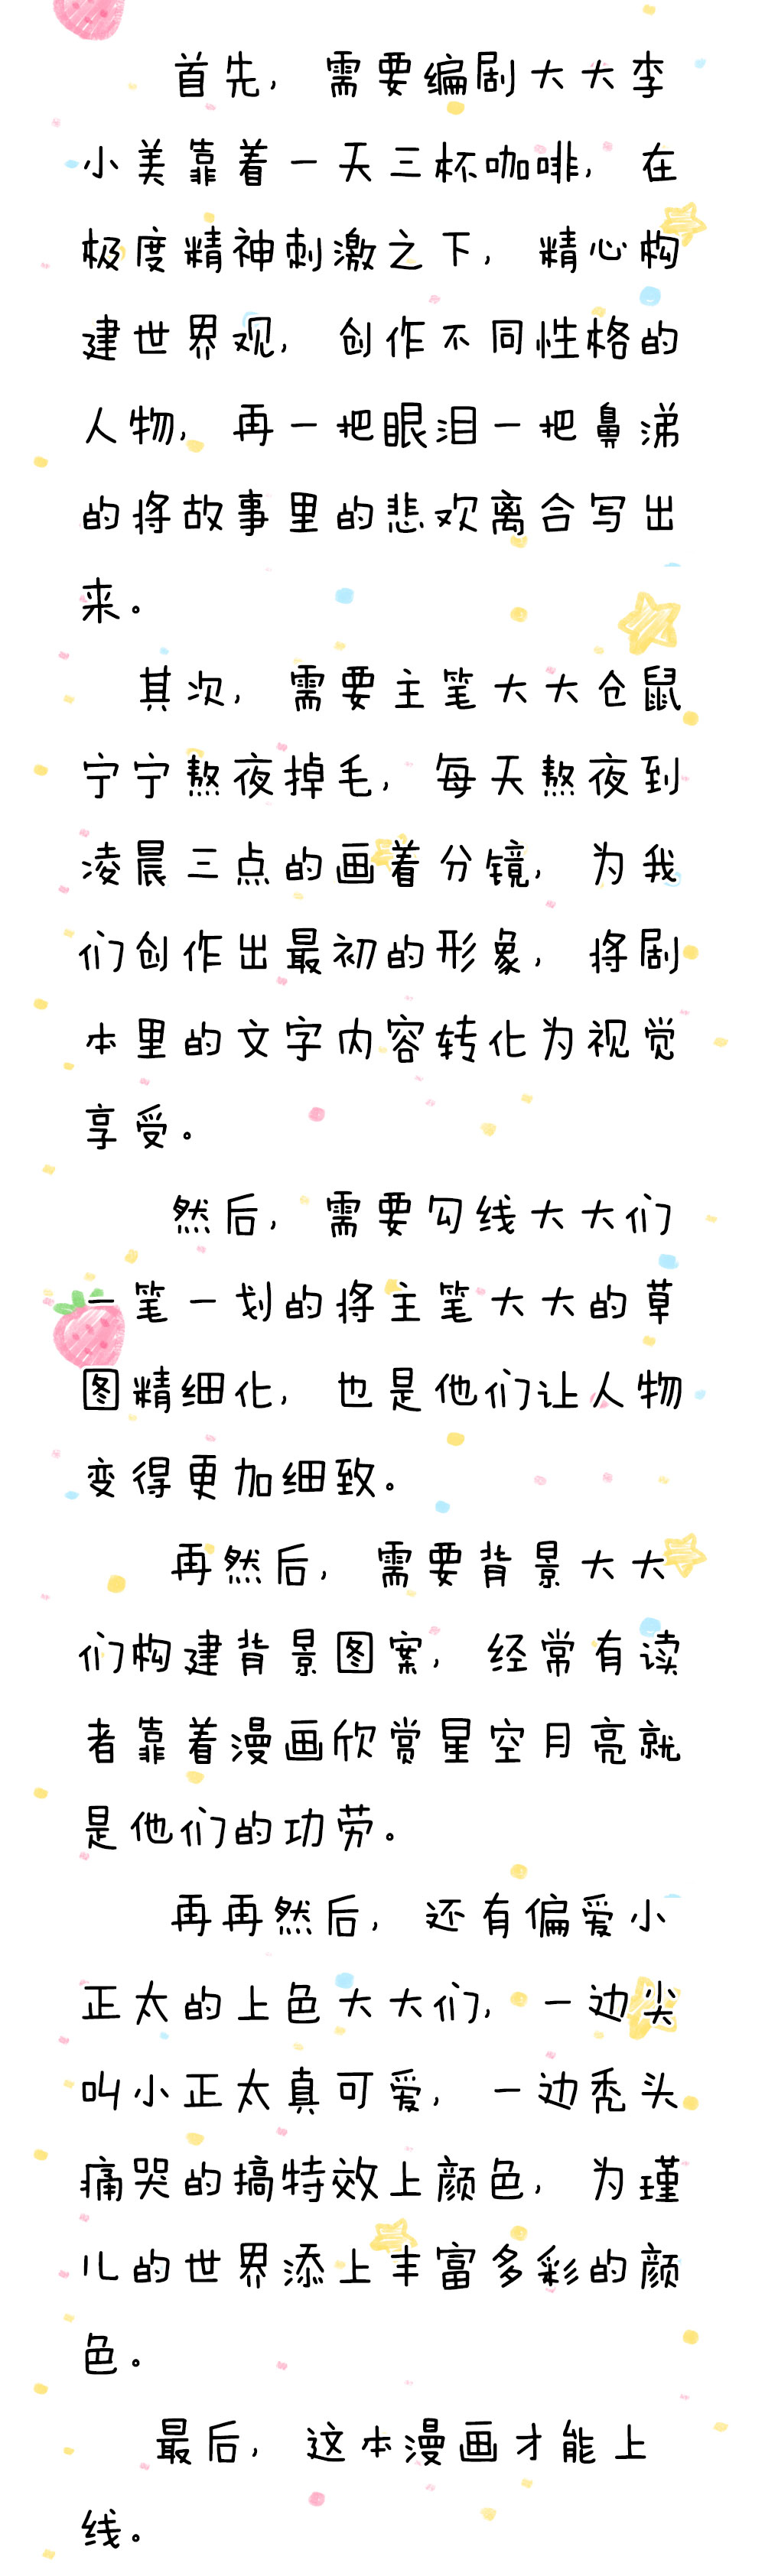 首先,需要编剧大大李
小美靠着一天三杯咖啡,在
极度精神刺激之下,精心构
建世界观,创作不同性格的
人物,再一把眼泪一把鼻涕
的将故事里的悲欢离合写出
来。
其次,需要主笔大大仓鼠
宁宁熬夜掉毛,每天熬夜到
凌晨三点的画着分镜,为我
们创作出最初的形象,将剧
本里的文字内容转化为视觉
享受。
然后,需要勾线大大们
一笔一划的将主笔大大的草
图精细化,也是他们让人物
变得更加细致。
再然后,需要背景大大
们构建背景图案,经常有读
者靠着漫画欣赏星空月亮就
是他们的功劳。
再再然后,还有偏爱小
正太的上色大大们,一边尖
叫小正太真可爱,一边秃头
痛哭的搞特效上颜色,为瑾
儿的世界添上丰富多彩的颜
色。
最后,这本漫画才能上
线。